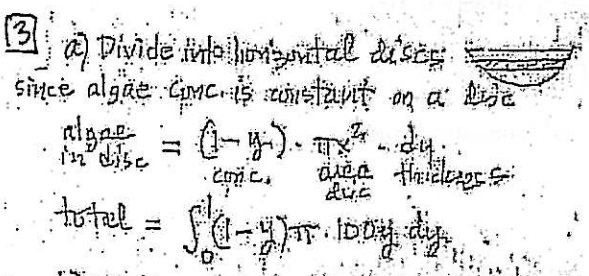 3 a) Divide into horizontal discs
since algae conc. is constant on a disc
algae in disc = (1-y) · πx² · dy
conc. area disc thickness
total = ∫₀¹(1-y)π·100y dy